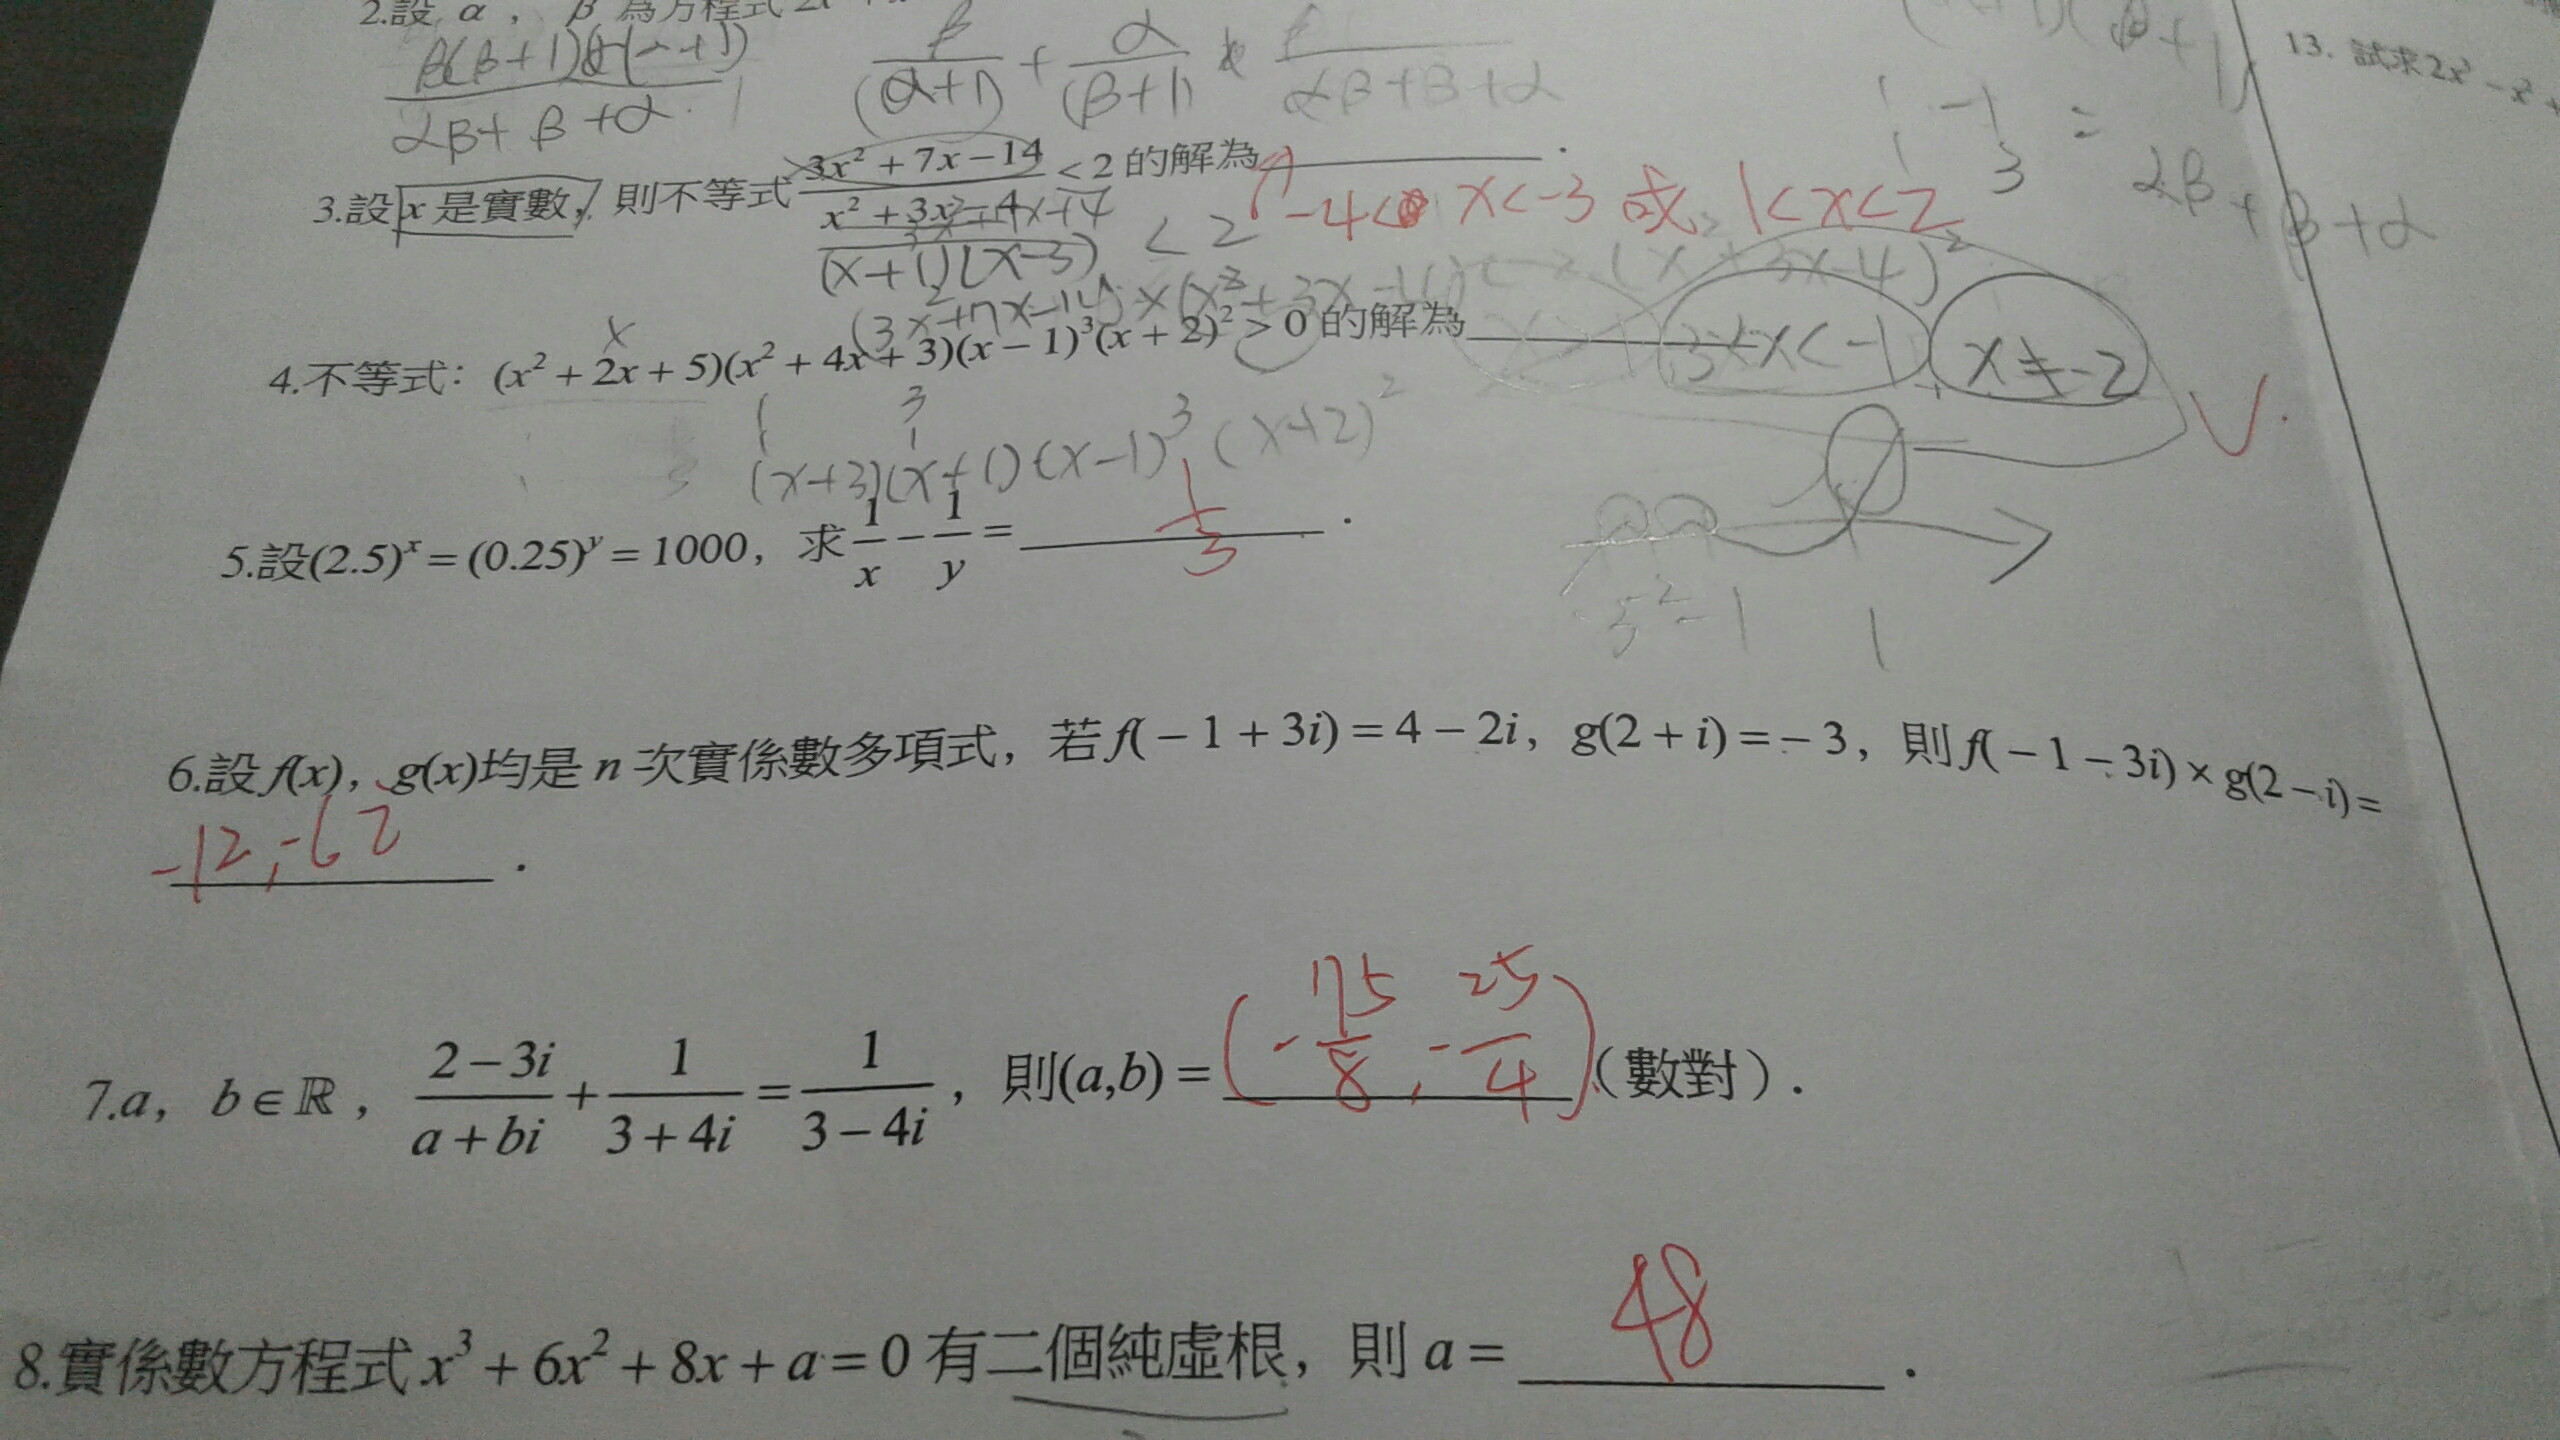 2.設 α , β 為方程式
β(β+1)α(α+1) / αβ+β+α
β/(α+1) + α/(β+1)
αβ+β+α
13. 試求2x³-x²+
1 -1
1 3
=
αβ+β+α
3.設 x 是實數, 則不等式 (3x²+7x-14)/(x²+3x-4) < 2 的解為 ______.
-4< x<-3 或 1<x<2
(x+1)(x-3) < 2
(3x²+7x-14)×(x²+3x-4) (x²+3x-4)²
4.不等式: (x²+2x+5)(x²+4x+3)(x-1)³(x+2)² > 0 的解為 ______
x<-1 x≠-2
1 3
1 1
(x+3)(x+1)(x-1)³(x+2)²
5.設(2.5)^x = (0.25)^y = 1000, 求 1/x - 1/y = 1/3 .
-1 1
6.設 f(x), g(x)均是 n 次實係數多項式, 若 f(-1+3i) = 4-2i, g(2+i) = -3, 則 f(-1-3i) × g(2-i) =
-12,-6i .
7.a, b∈ℝ, (2-3i)/(a+bi) + 1/(3+4i) = 1/(3-4i), 則(a,b) = (-175/8, -25/4) (數對).
8.實係數方程式 x³+6x²+8x+a=0 有二個純虛根, 則 a = 48 .